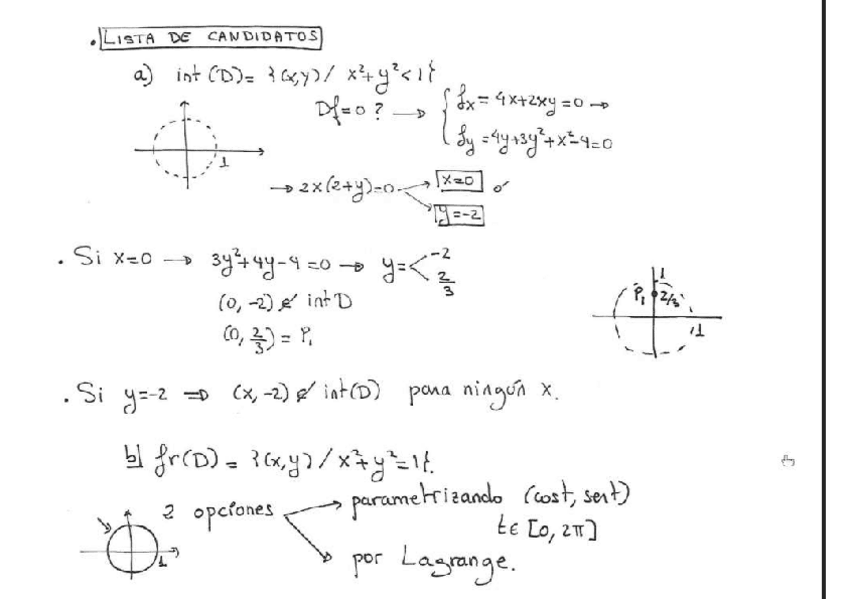 . LISTA DE CANDIDATOS
a) int (D) = {(x,y) / x²+y²<1}
Df=0 ? → { fx = 4x+2xy=0 →
fy = 4y+3y²+x²-4=0
1
→ 2x(2+y)=0 → x=0 o
y=-2
. Si x=0 → 3y²+4y-4=0 → y= < -2
2/3
(0, -2) ∉ int D
(0, 2/3) = P₁
1
P₁ 2/3
1
. Si y=-2 ⇒ (x,-2) ∉ int(D) para ningún x.
b) fr(D) = {(x,y) / x²+y²=1}.
2 opciones → parametrizando (cost, sent)
t∈ [0, 2π]
→ por Lagrange.
1